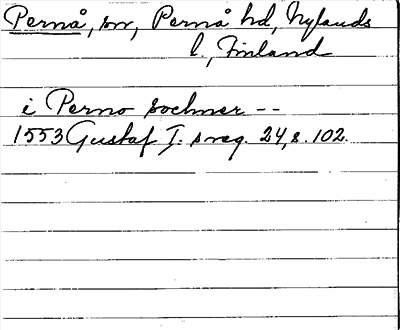 Pernå, sn, Pernå hd, Nylands
l., Finland
i Perno sochner --
1553 Gustaf I: s reg. 24, s. 102.